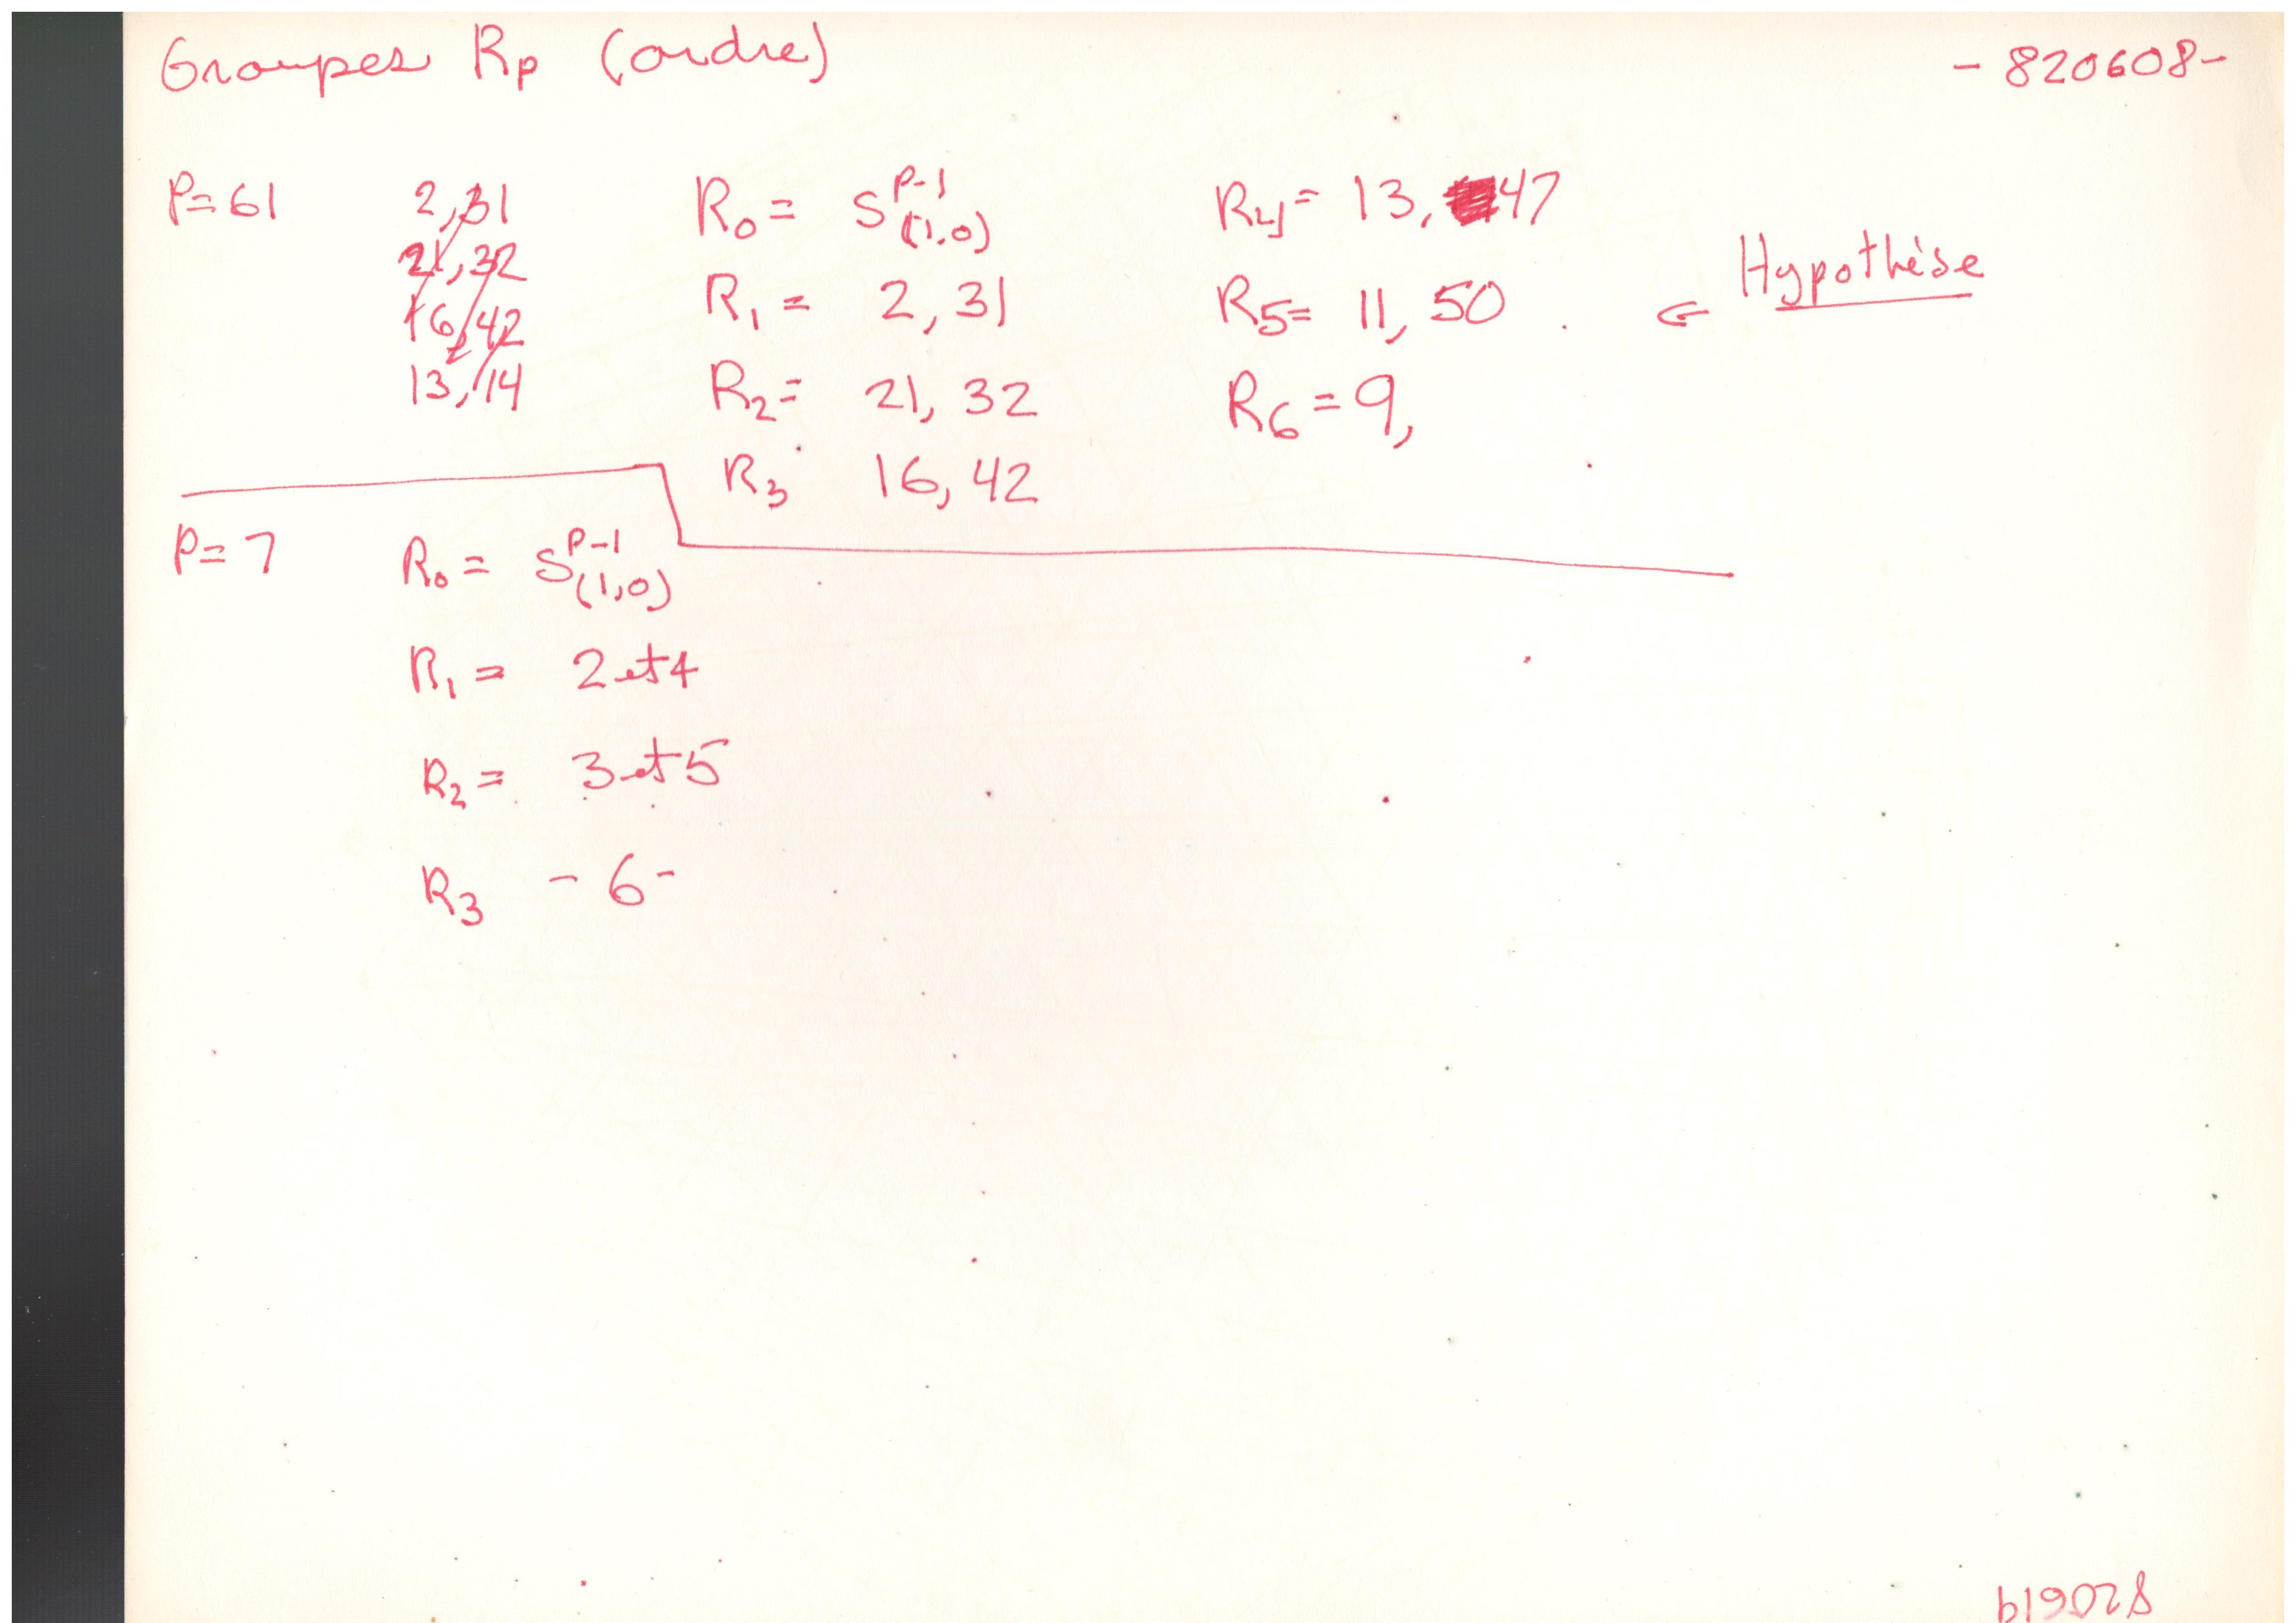 Groupes Rp (ordre)
- 820608 -
P=61
2,31
21,32
16,42
13,14
R0 = S^{P-1}_{(1,0)}
R1 = 2, 31
R2 = 21, 32
R3 16, 42
R4 = 13, 47
R5 = 11, 50 . ← Hypothèse
R6 = 9,
P=7
R0 = S^{P-1}_{(1,0)}
R1 = 2 et 4
R2 = 3 et 5
R3 - 6 -
820619